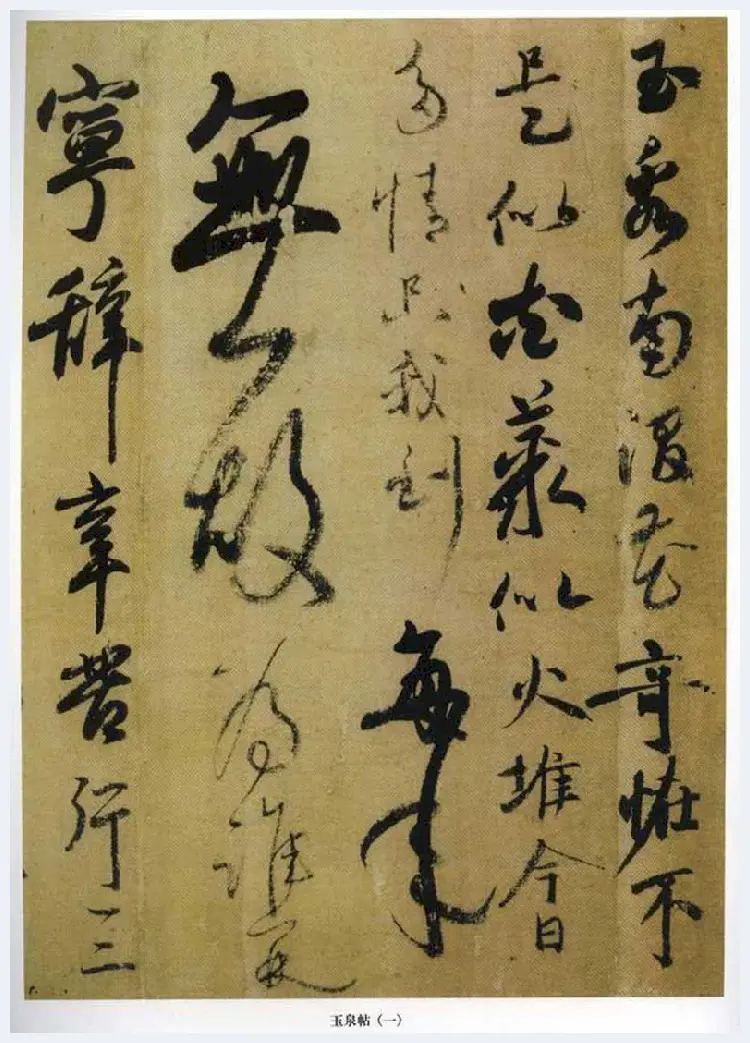 玉泉南澗花奇怪不
是似花叢似火堆今日
多情只我到每年
無故為誰開
寧辭辛苦行三
玉泉帖（一）